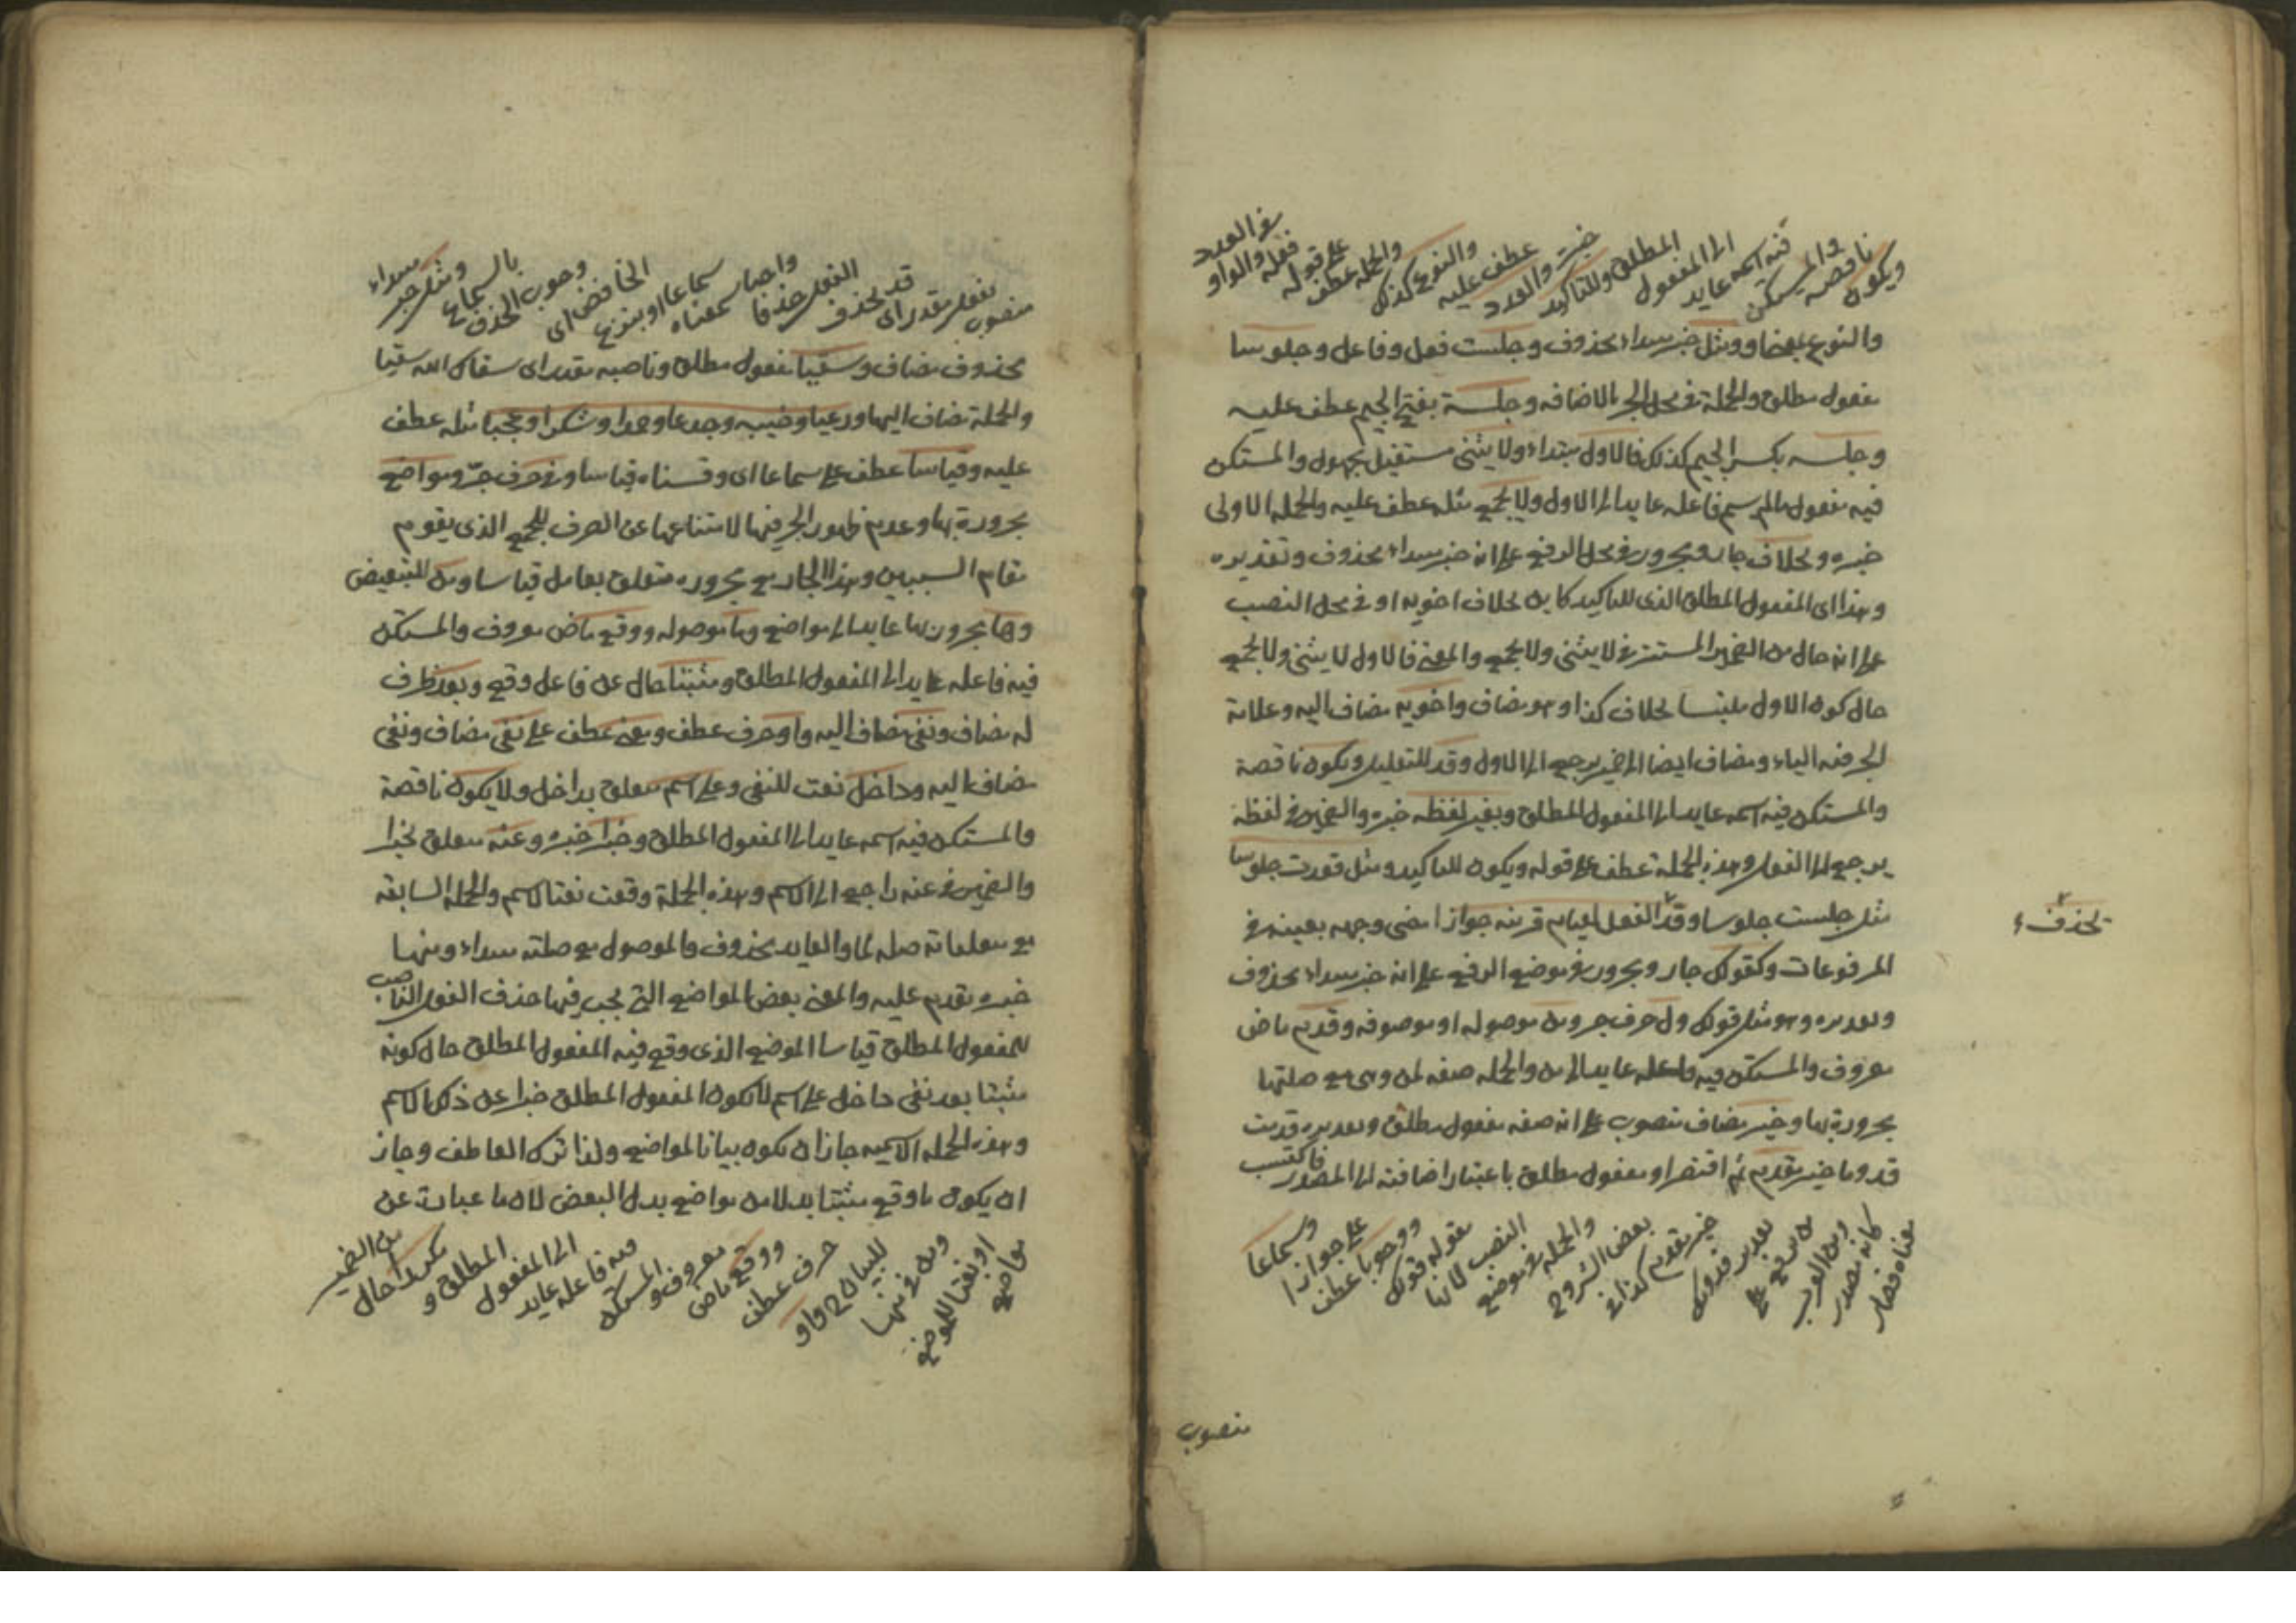 ويكون ناقصة والمستكن فيه اسمه عايد الى المفعول المطلق وللتاكيد خبره والعدد عطف عليه والنوع كذلك والجملة عطف على قوله فعله والواو في العدد
والنوع بمعنى او ومثل خبر مبتداء محذوف وجلست فعل وفاعل وجلوسا
مفعول مطلق والجملة في محل الجر بالاضافه وجلسة بفتح الجيم عطف عليه
وجلسه بكسر الجيم كذلك فالاول مبتداء ولا يثنى مستقبل مجهول والمستكن
فيه مفعول مالم يسم فاعله عايد الى الاول ولا يجمع مثله عطف عليه والجمله الاولى
خبره وبخلاف جار ومجرور في محل الرفع على انه خبر مبتداء محذوف وتقديره
وهذا اى المفعول المطلق الذى للتاكيد كاين بخلاف اخويه او في محل النصب
على انه حال من الضمير المستتر في لا يثنى ولا يجمع والمعنى فالاول لا يثنى ولا يجمع
حال كون الاول ملتبسا بخلاف كذا وهو مضاف واخويه مضاف اليه وعلامة
الجر فيه الياء ومضاف ايضا الى ضمير يرجع الى الاول وقد للتقليل ويكون ناقصة
والمستكن فيه اسمه عايد الى المفعول المطلق وبغير لفظه خبره والضمير في لفظه
يرجع الى الفعل وهذه الجملة عطف على قوله ويكون للتاكيد ومثل قعدت جلوسا
مثل جلست جلوسا وقد الفعل لقيام قرينه جوازا مضى وجهه بعينه في
يحذف
المرفوعات وكقولك جار ومجرور في موضع الرفع على انه خبر مبتداء محذوف
وتقديره وهو مثل قولك ول حرف جر ومن موصوله او موصوفه وقدم ماض
معروف والمستكن فيه فاعله عايد الى من والجمله صفه لمن وهى مع صلتها
مجرورة بها وخير مضاف منصوب على انه صفه مفعول مطلق وتقديره قدمت
قدوما خير مقدم ثم اقتصر او مفعول مطلق باعتبار اضافته الى المصدر فاكتسب
معناه فصار كانه مصدر ومن العرب من يرفع على تقدير قدومك خير مقدم كذا في بعض الشروح والجمله في موضع النصب لانها مقوله قولك ووجوبا عطف على جوازا وسماعا
منصوب
منصوب بفعل مقدر اى قد يحذف الفعل حذفا واجبا سماعا معناه او بنزع الخافض اى وجوب الحذف بالسماع ومثل خبر مبتداء
محذوف مضاف وسقيا مفعول مطلق وناصبه مقدر اى سقاك الله سقيا
والجملة مضاف اليها ورعيا وخيبه وجدعا وحمدا وشكرا وعجبا مثله عطف
عليه وقياسا عطف على سماعا اى وقسناه قياسا وفى حرف جرّ ومواضع
مجرورة بها وعدم ظهور الجر فيها لامتناعها عن الصرف للجمع الذى يقوم
مقام السببين وهذا الجار مع مجروره متعلق بعامل قياسا ومن للتبعيض
وها مجرور بها عايد الى مواضع وما موصوله ووقع ماض معروف والمستكن
فيه فاعله عايد الى المفعول المطلق ومثبتا حال عن فاعل وقع وبعد ظرف
له مضاف ونفى مضاف اليه واو حرف عطف ومعنى عطف على نفى مضاف ونفى
مضاف اليه وداخل نعت للنفى وعلى اسم متعلق بداخل ولا يكون ناقصة
والمستكن فيه اسمه عايد الى المفعول المطلق وخبرا خبره وعنه متعلق بخبرا
والضمير في عنه راجع الى الاسم وهذه الجملة وقعت نعتا لاسم والجمله السابقه
مع متعلقاته صله لما والعايد محذوف فالموصول مع صلته مبتداء ومنها
خبره تقدم عليه والمعنى بعض المواضع التى يجب فيها حذف الفعل الناصب
للمفعول المطلق قياسا الموضع الذى وقع فيه المفعول المطلق حال كونه
مثبتا بعد نفى داخل على اسم لا يكون المفعول المطلق خبرا عن ذلك الاسم
وهذه الجمله الاسميه جاز ان يكون بيانا لمواضع ولذا ترك العاطف وجاز
ان يكون ما وقع مثبتا بدلا من مواضع بدل البعض لان ما عبارت عن
مواضع او نعتا للموضع ومن في منها للبيان واو حرف عطف ووقع ماض معروف والمستكن فيه فاعله عايد الى المفعول المطلق و مكررا حال من الضمير